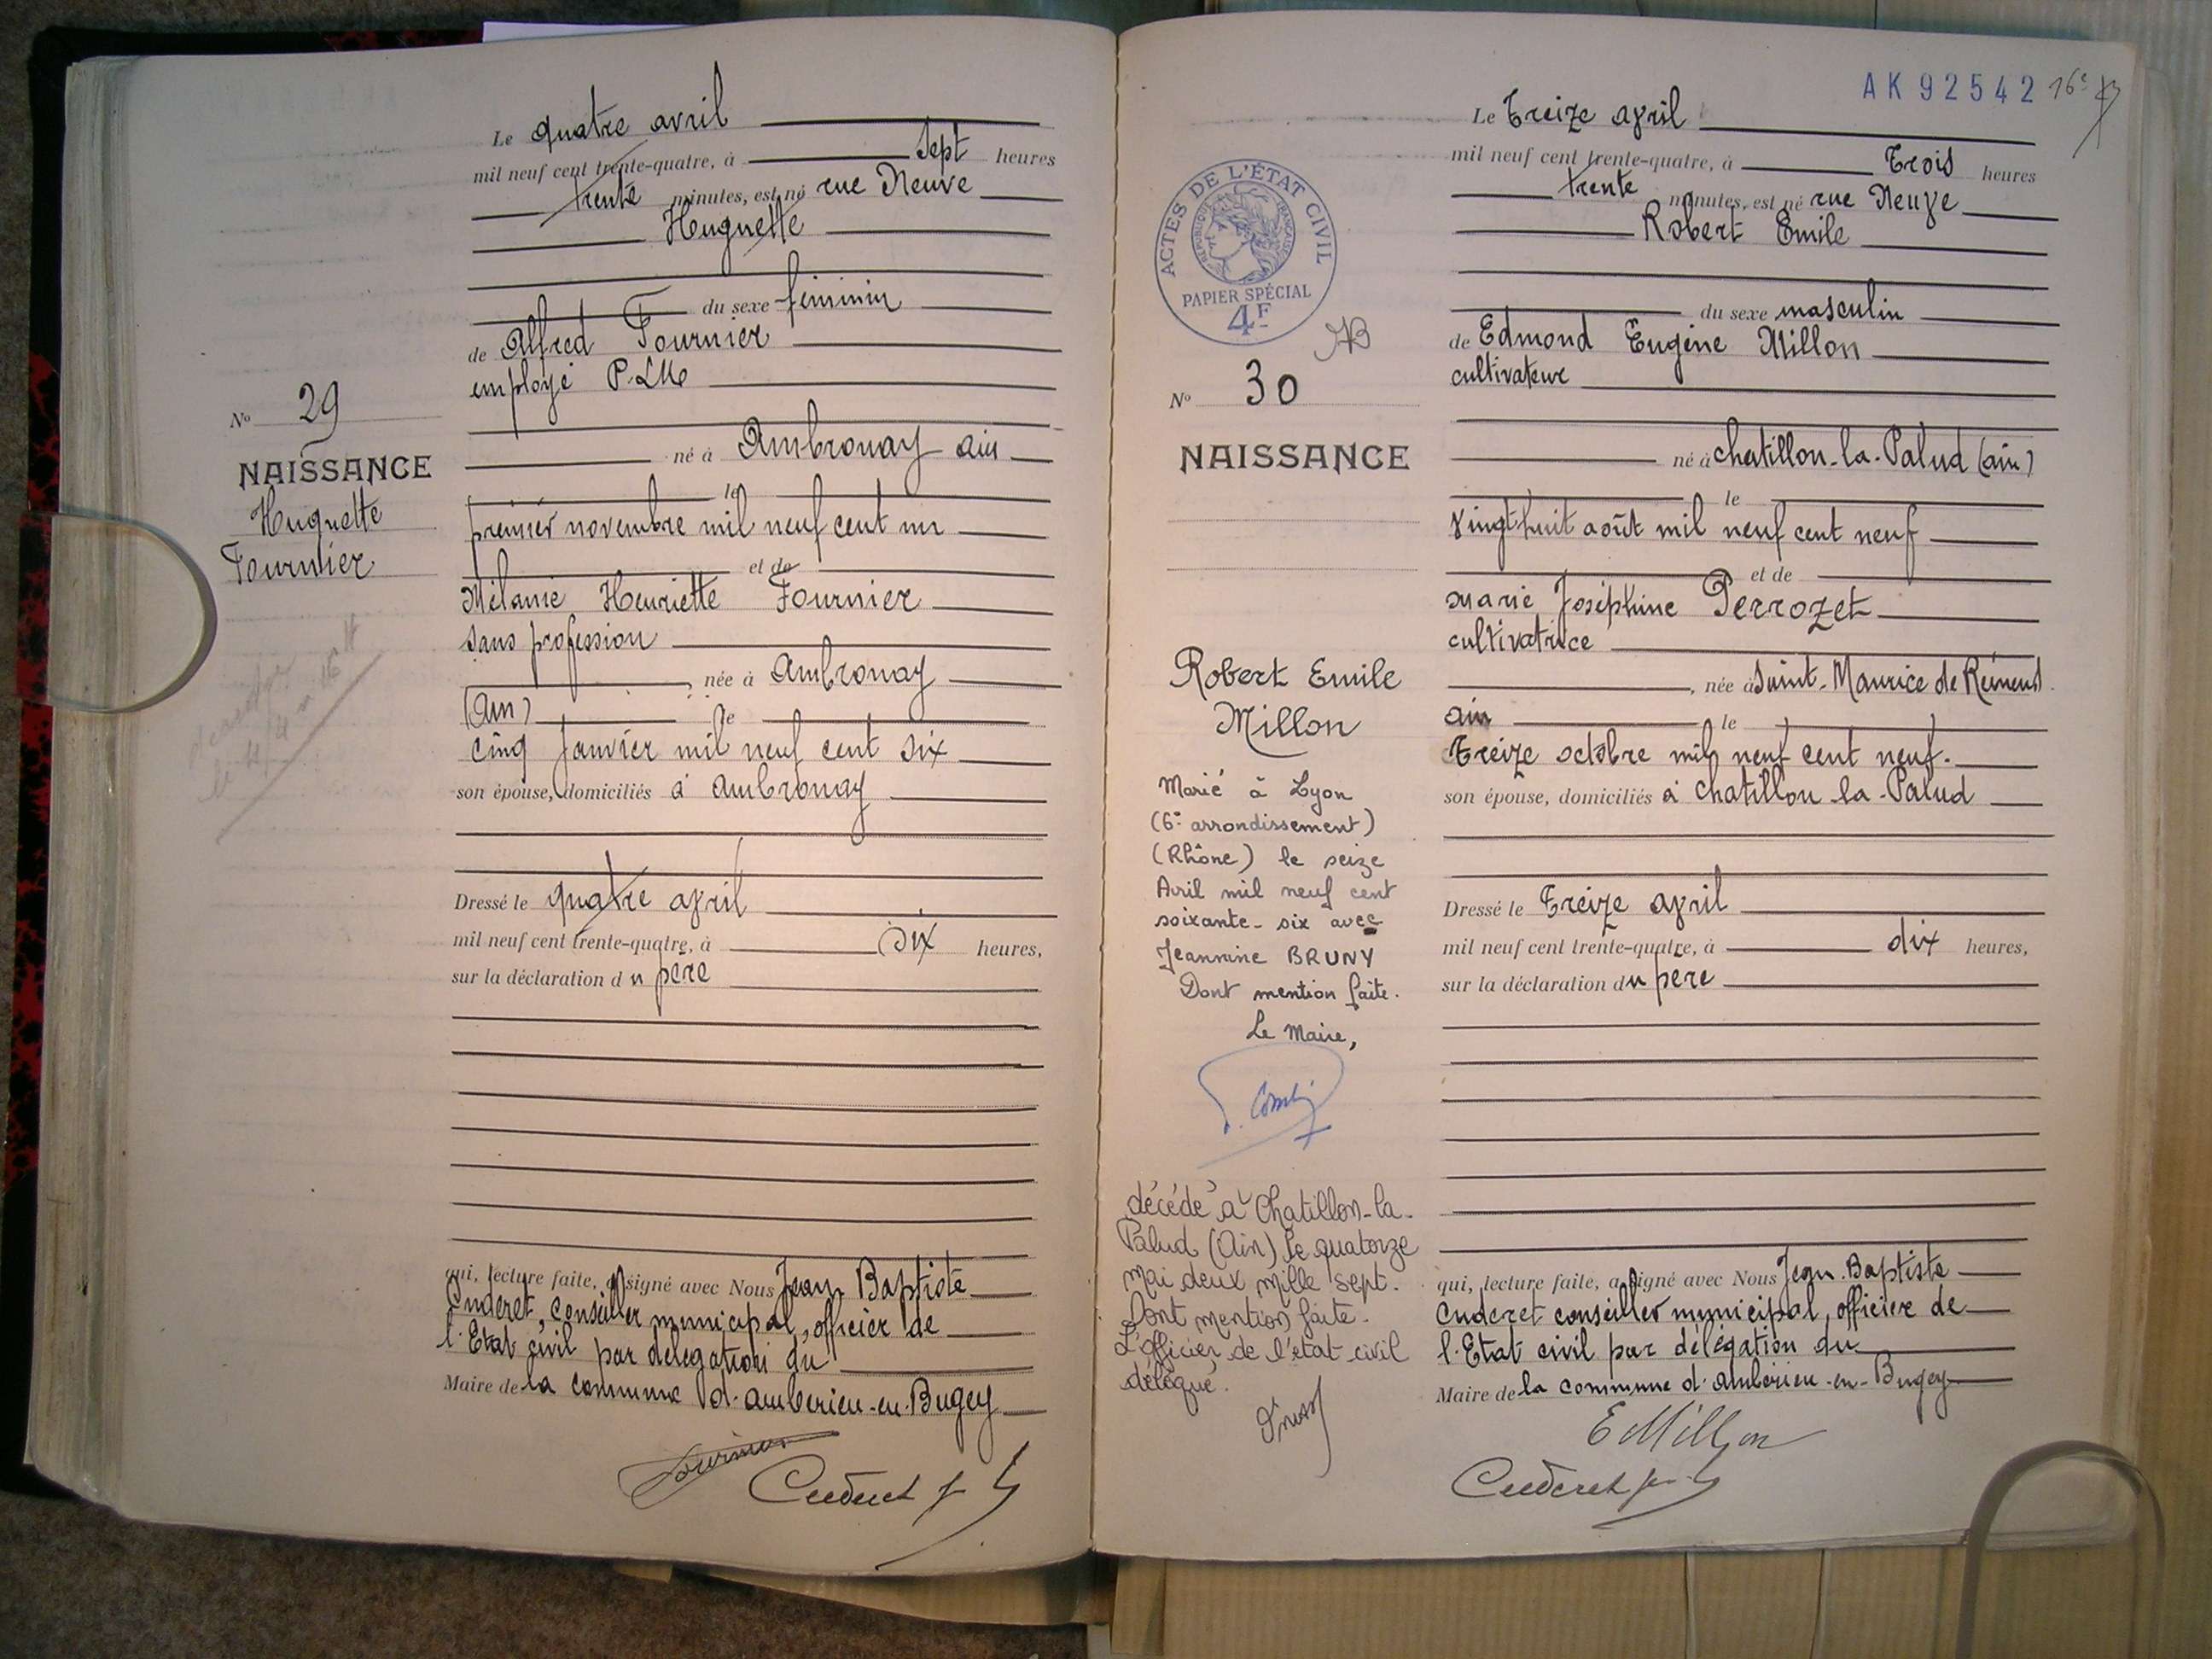 Le quatre avril
mil neuf cent trente-quatre, à Sept heures
trente minutes, est né rue Neuve
Huguette
du sexe féminin
de Alfred Fournier
employé P.L.M
né à Ambronay ain
le
premier novembre mil neuf cent un
et de
Mélanie Henriette Fournier
sans profession
, née à Ambronay
(Ain) le
cinq Janvier mil neuf cent six
son épouse, domiciliés à Ambronay
Dressé le quatre avril
mil neuf cent trente-quatre, à dix heures,
sur la déclaration du père
qui, lecture faite, a signé avec Nous Jean Baptiste
Cuderet, conseiller municipal, officier de
l'Etat civil par délégation du
Maire de la commune d'Ambérieu-en-Bugey
Fournier
Cuderet
No 29
NAISSANCE
Huguette
Fournier
AK 92542 16e
ACTES DE L'ÉTAT CIVIL
RÉPUBLIQUE FRANÇAISE
PAPIER SPÉCIAL
4F
No 30
NAISSANCE
Robert Emile
Millon
Marié à Lyon
(6e arrondissement)
(Rhône) le seize
Avril mil neuf cent
soixante-six avec
Jeannine BRUNY
Dont mention faite.
Le Maire,
décédé à Chatillon-la-
Palud (Ain) le quatorze
mai deux mille sept.
Dont mention faite.
L'officier de l'état civil
délégué.
Le Treize avril
mil neuf cent trente-quatre, à Trois heures
trente minutes, est né rue Neuve
Robert Emile
du sexe masculin
de Edmond Eugène Millon
cultivateur
né à Chatillon-la-Palud (ain)
le
vingt huit août mil neuf cent neuf
et de
Marie Joséphine Perrozet
cultivatrice
, née à Saint-Maurice de Rémens
ain le
Treize octobre mil neuf cent neuf.
son épouse, domiciliés à Chatillon-la-Palud
Dressé le Treize avril
mil neuf cent trente-quatre, à dix heures,
sur la déclaration du père
qui, lecture faite, a signé avec Nous Jean-Baptiste
Cuderet conseiller municipal, officier de
l'Etat civil par délégation du
Maire de la commune d'Ambérieu-en-Bugey
E Millon
Cuderet